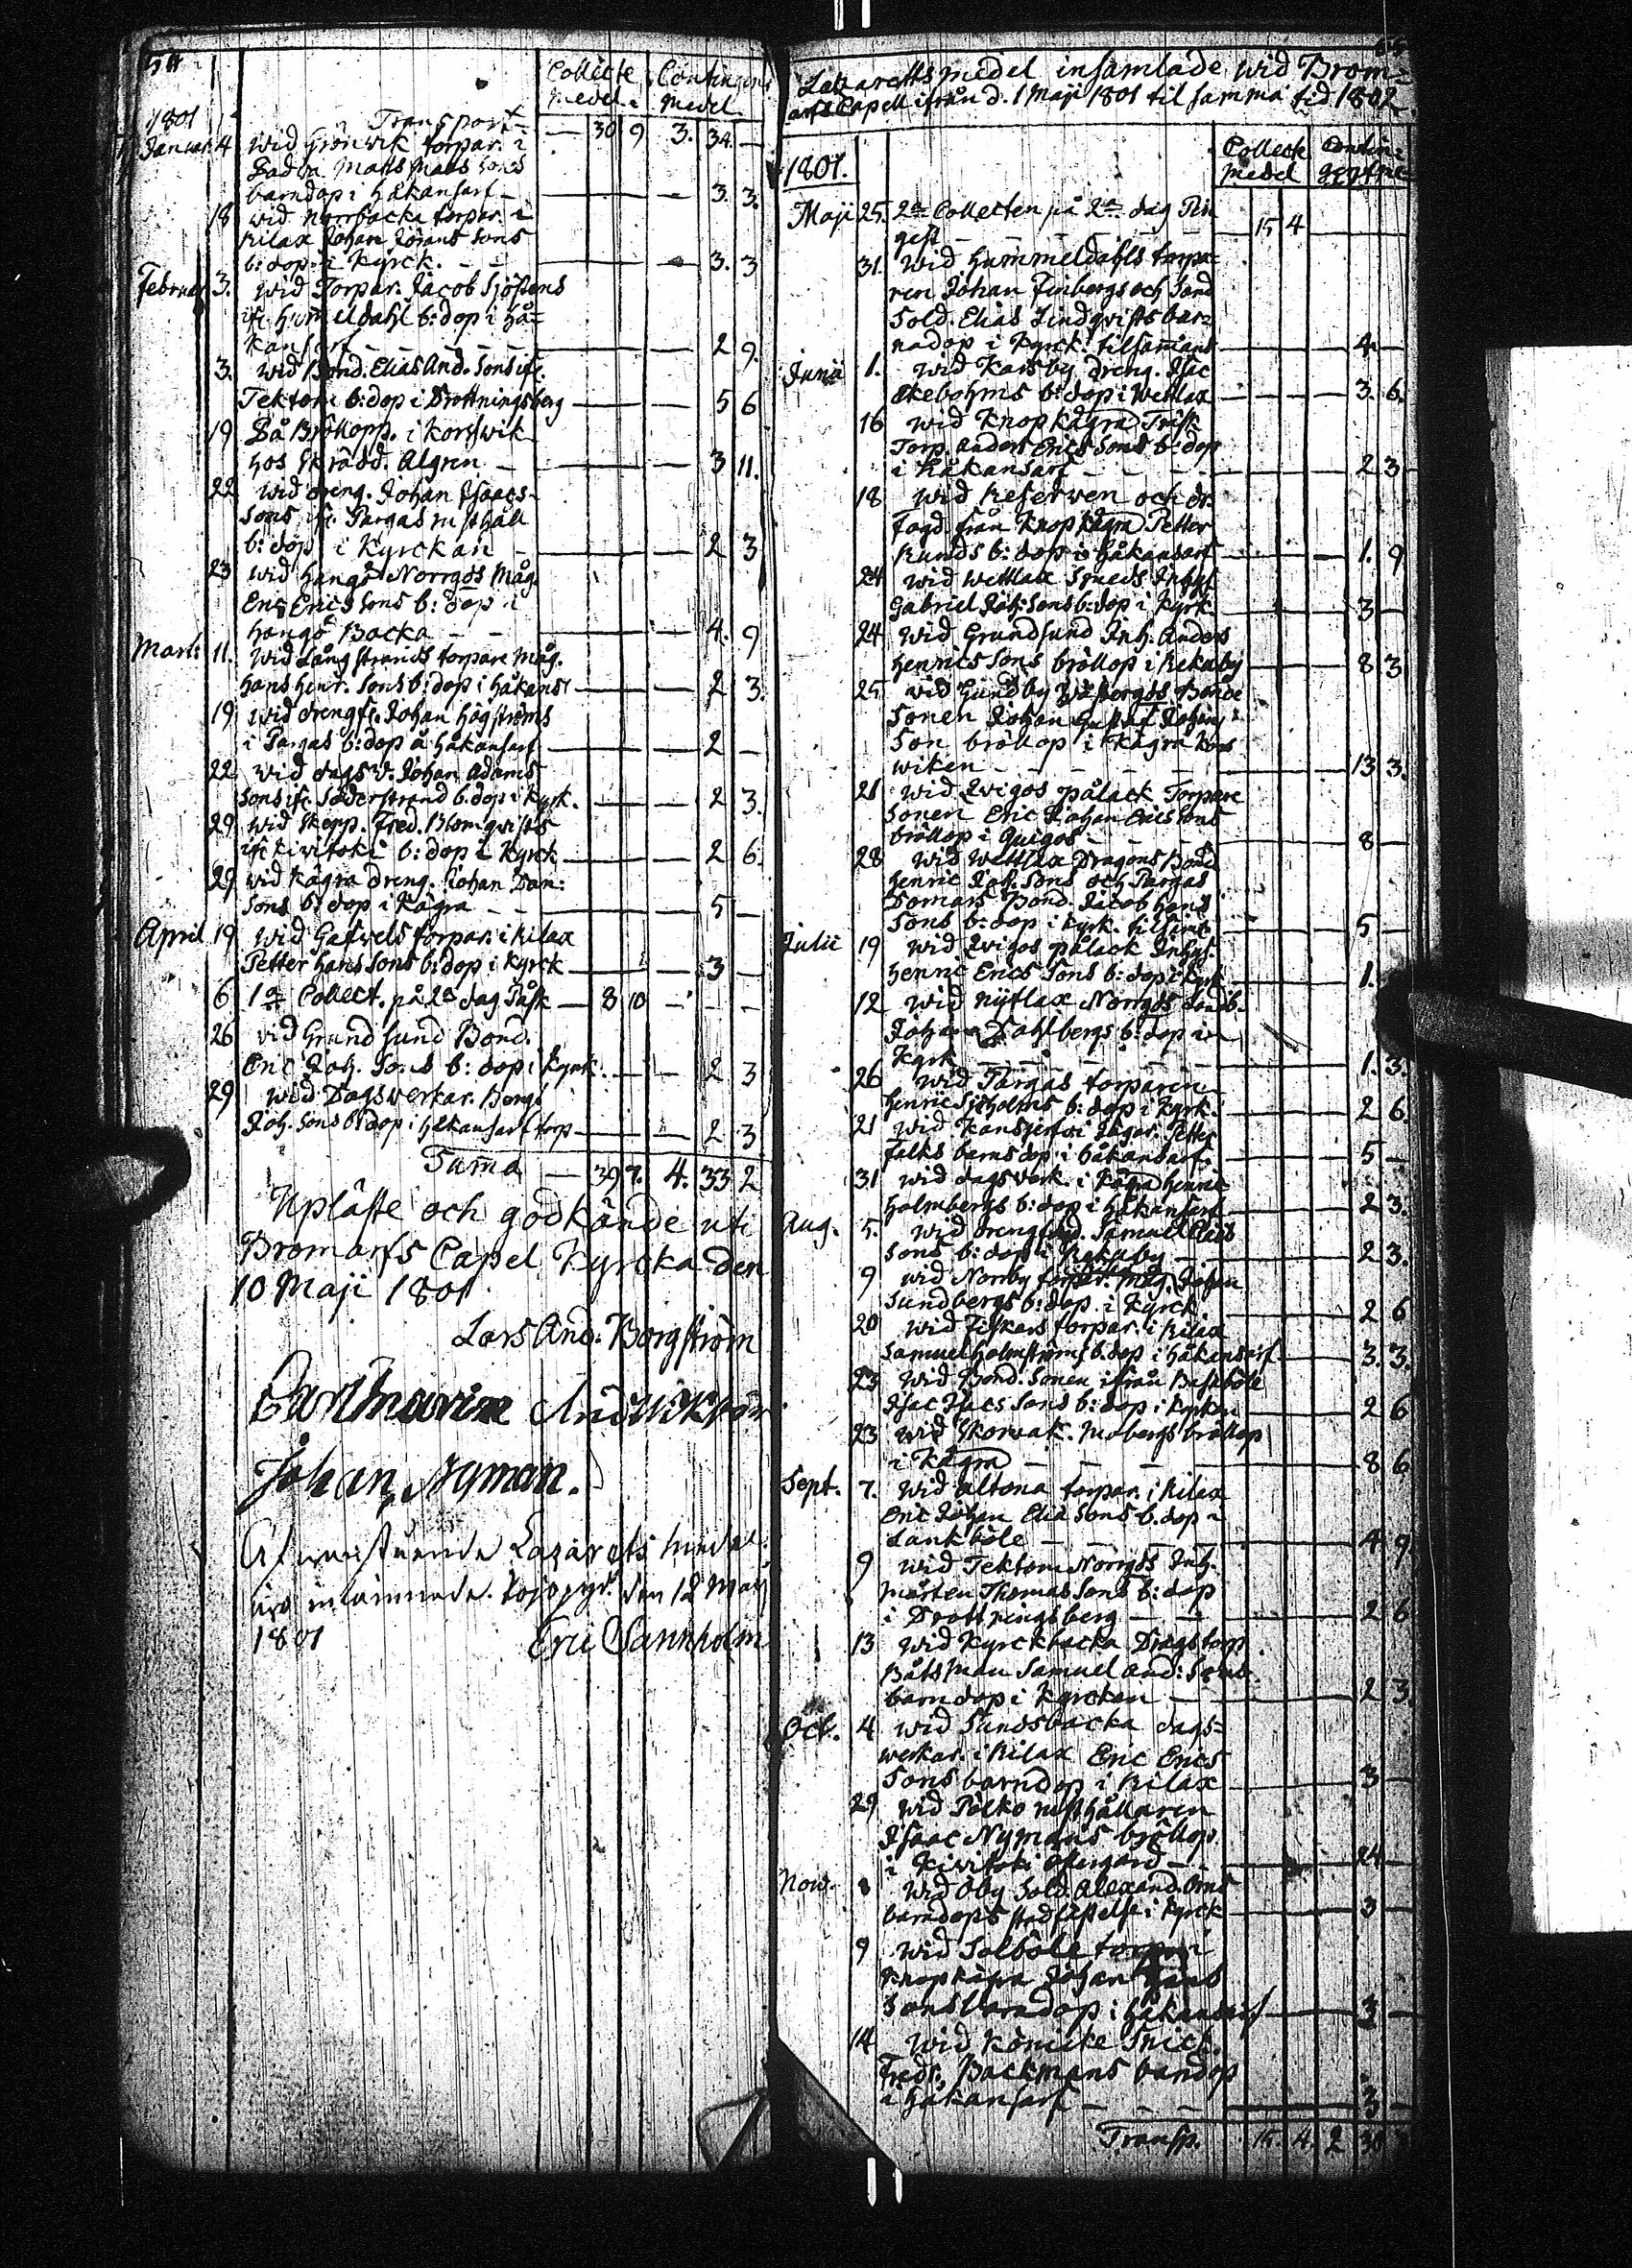 54
Collecte Contingent
Medel. Medel.
1801 Transport - 30 9 3. 34. -
Januar. 4 wid Grönwik torpar. i
Padva Matts Matts Sons
barndop i Håkansarf - 3. 3.
18 wid Norrbacka torpar. i
Rilax Johan Jörans Sons
b: dop i Kyrck. - 3. 3
Februar 3. wid Torpar. Jacob Sjöstens
ifr. Humeldahl b: dop i Hå-
kansarf - 2 9.
3. wid Bond. Elias And. Sons ifr.
Tektom b: dop i Drottningsberg - 5 6
19 På Bröllopp. i Korswik
hos Skrädd. Algren - 3 11.
22 wid dreng. Johan Isaacs-
Sons ifr. Pargas rusthåll
b: dop i Kyrckan - 2 3
23 wid Hangö Norrgds Måg.
Eric Erics Sons b: dop i
Hangö Backa - 4. 9
Marti 11. wid Långstrands torpare Måg.
Hans Henr. Sons b: dop i Håkans: - 2 3.
19 wid drengk. Johan Högströms
i Pargas b: dop å Håkansarf - 2 -
22 wid dagsv. Johan Adams
Sons ifr. Söderstrand b. dop i Kyrk. - 2 3.
29 wid Skepp. Fred. Blomqvists
ifr. Kivitoki b: dop i Kyrck - 2 6.
29 wid Kågra dreng. Johan Dan:
Sons b: dop i Kågra - 5 -
April 19 wid Gafwels torpar. i Rilax
Petter Hans Sons b: dop i Kyrck - 3 -
6 1a Collect. på 2a dag Påsk - 8 10 -
26 vid Grundsund Bond.
Eric Joh. Sons b: dop i Kyrk. - 2 3
29 wid Dagswerkar. Bengt
Joh. Sons b: dop i Håkansarf torp - 2 3
Suma - 39 7. 4. 33 2
Upläste och godkände uti
Bromarfs Capel Kyrcka den
10 Maji 1801
Lars And: Borgström
Johan Nyman.
Lazarets medel
äro inlämnade. den 12 Maij
1801 Eric Sannholm
Lazaretts medel insamlade wid Brom-
arfs Capell ifrån d. 1 Maji 1801 til samma tid 1802
1801. Collect Contin-
Medel gent me-
Maji 25. 2a Collecten på 2a dag Pin
gest - 15 4
31. wid Hummeldahls torpa-
ren Johan Finbergs och Sand
Sold. Elias Lindqvists bar-
nadop i Kyrck. tilsamans - 4 -
Junii 1. wid Karsby dreng. Isac
Ekebohms b: dop i Wettlax - 3. 6.
16 wid Knopkägra Träsk
Torp. Anders Erics Sons b: dop
i Håkansarf - 2 3
18 wid Reserven och dr.
Fogd. från Knopkägra Petter
Runds b: dop i Håkansarf - 1. 9
24 wid Wettlax Smeds Inhys
Gabriel Joh: Sons b: dop i Kyrk - 3 -
24 wid Grundsund Inh. Anders
Henrics Sons bröllop i Rekuby - 8 3
25 wid Gundby Wästergds Bonde
Sonen Johan Gustaf Johans
Son bröllop i Kågra Kors
wiken - 13 3.
21 wid Qvigos pålack Torpare
Sonen Eric Johan Erics Sons
bröllop i Qvigos - 8 -
28 wid Wättlax Dragons Bond.
Henric Joh. Sons och Pargas
Domars Bond. Jacob Hans
Sons b: dop i Kyrk. tilsamt - 5 -
Julii 19 wid Qvigos pålack Inhys.
Henric Erics Sons b: dop i Kyrk - 1. -
12 wid Nytlax Norrgds Landb.
Johan Dahlbergs b: dop i
Kyrk - 1. 3.
26 wid Pargas torparen
Henric Sjöholms b: dop i Kyrk. - 2 6.
21 wid Kansjerfvi Jägar. Petter
Falks barnsdop i Håkansarf. - 5 -
31 wid dagsverk. i Kågra Henric
Holmbergs b: dop i Håkansarf - 2 3.
Aug. 5. wid drengfogd. Samuel Clas
Sons b: dop i Rekuby - 2 3.
9 wid Norrby torpar. Måg. Johan
Sundbergs b: dop i Kyrck - 2 6
20 wid Fiskars torpar. i Rilax
Samuel Holmströms b. dop i Håkansarf - 3. 3.
23 wid Bond. Sonen ifrån Basaböle
Isac Isacs Sons b: dop i Kyrkan - 2 6
23 wid Skorvak. Mobergs bröllop
i Kågra - 8 6
Sept. 7. wid Altona torpar. i Rilax
Eric Johan Elia Sons b. dop i
Lankböle - 4 9.
9 wid Tektom Norrgds Inh.
Mårten Thomas Sons b: dop
i Drottningsberg - 2 6
13 wid Kyrckbacka Dragstorp
Båtsman Samuel And: Sons
barndop i Kyrckan - 2 3.
Oct. 4 wid Sundsbacka dags-
werkar. i Rilax Eric Erics
Sons barndop i Rilax - 3 -
29 wid Pölkö rusthållaren
Isaac Nymans bröllop
i Kivitoki Östergård - 24 -
Now. 8 wid Öby Sold. Alexand. Orns
barndops stadfästelse i Kyrck - 3 -
9 wid Solböle torpar i
Knopkägra Johan Hans
Sons barndop i Håkansarf - 3 -
14 wid Könicke Snick.
Fredr. Backmans barndop
i Håkansarf - 3 -
Transp. 15. 4. 2 30 3